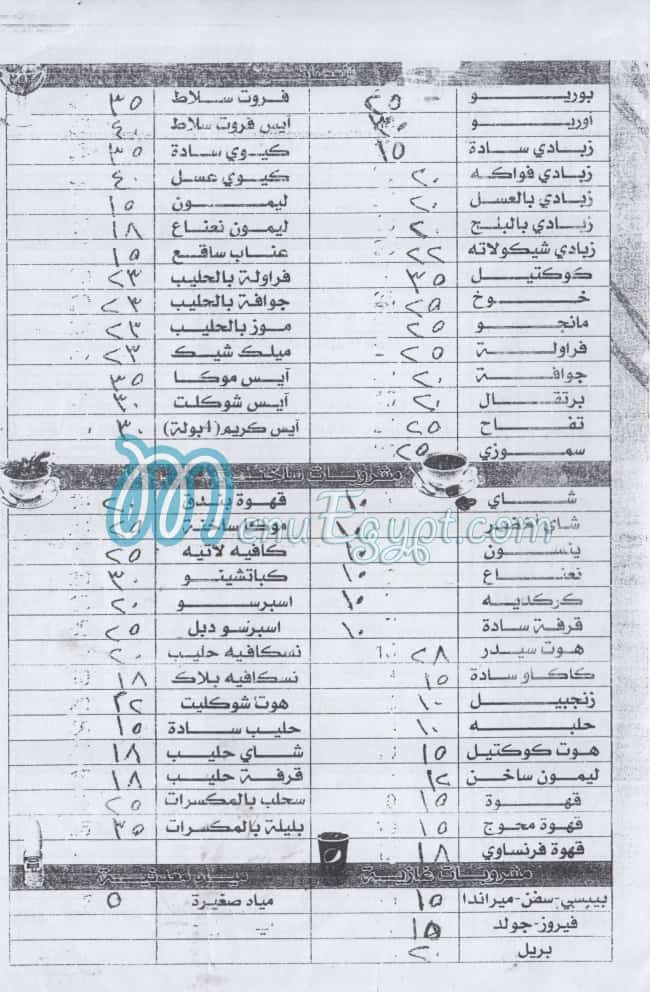 بوريو ٢٥ فروت سلاط ٣٥
أوريو ٣٠ آيس فروت سلاط ٤٠
زبادي سادة ١٥ كيوي سادة ٣٥
زبادي فواكه ٢٠ كيوي عسل ٤٠
زبادي بالعسل ٢٠ ليمون ١٥
زبادي بالبلح ٢٠ ليمون نعناع ١٨
زبادي شيكولاته ٢٢ عناب ساقع ١٥
كوكتيل ٣٥ فراولة بالحليب ٢٣
خوخ ٢٥ جوافة بالحليب ٢٣
مانجو ٢٥ موز بالحليب ٢٣
فراولة ٢٥ ميلك شيك ٢٣
جوافة ٢٠ آيس موكا ٣٥
برتقال ٢٠ آيس شوكلت ٣٠
تفاح ٢٥ آيس كريم (4بولة) ٣٠
سموزي ٢٥
مشروبات ساخنة
شاي ١٠ قهوة بندق
شاي أخضر ١٠ موكا ساخنة ٢٥
ينسون ١٥ كافيه لاتيه ٢٥
نعناع ١٠ كباتشينو ٣٠
كركديه ١٠ اسبرسو ٢٠
قرفة سادة ١٠ اسبرسو دبل ٢٥
هوت سيدر ٢٨ نسكافيه حليب ٢٠
كاكاو سادة ١٥ نسكافيه بلاك ١٨
زنجبيل ١٠ هوت شوكليت ٢٢
حلبه ١٠ حليب سادة ١٥
هوت كوكتيل ١٥ شاي حليب ١٨
ليمون ساخن ١٢ قرفة حليب ١٨
قهوة ١٥ سحلب بالمكسرات ٢٥
قهوة محوج ١٥ بليلة بالمكسرات ٣٥
قهوة فرنساوي ١٨
مشروبات غازية مياه معدنية
بيبسي-سفن-ميراندا ١٥ مياه صغيرة ٥
فيروز-جولد ١٥
بريل ٢٠
MenuEgypt.com